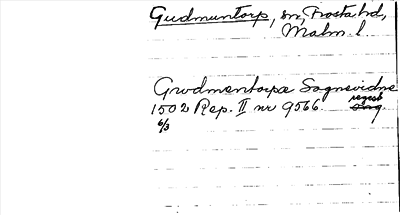 Gudmuntorp, sn, Frosta hd,
Malm. l.
Grwdmentorpa Sognevidne
1502 Rep. II nr 9566. regest
6/3